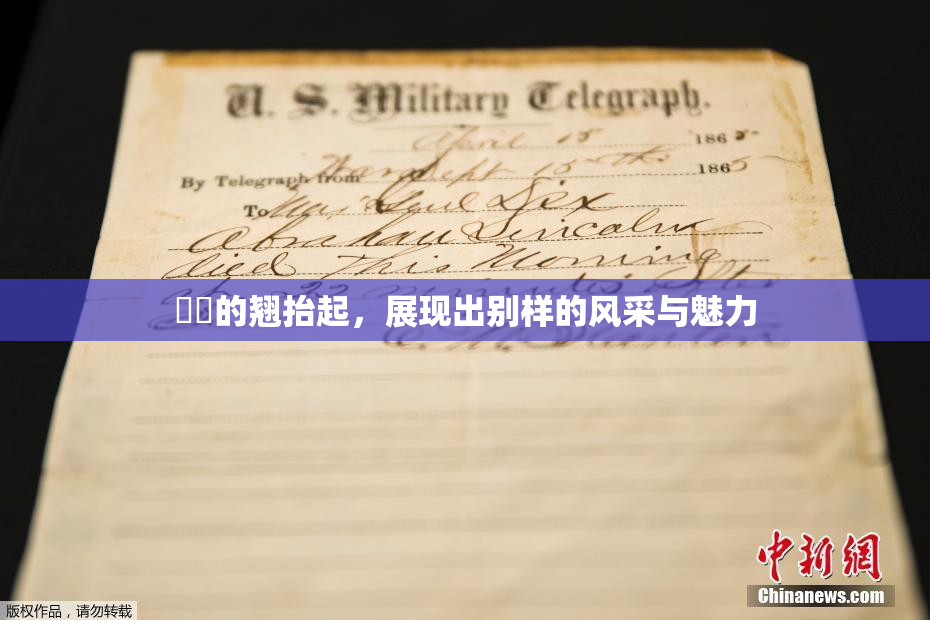 U. S. Military Telegraph.
April 15 1865
By Telegraph from War Dept 15th 1865
To Maj Genl Dix
Abraham Lincoln
died This Morning
22 minutes after
的翘抬起，展现出别样的风采与魅力
E. M. Stanton
中新网
Chinanews.com
版权作品，请勿转载